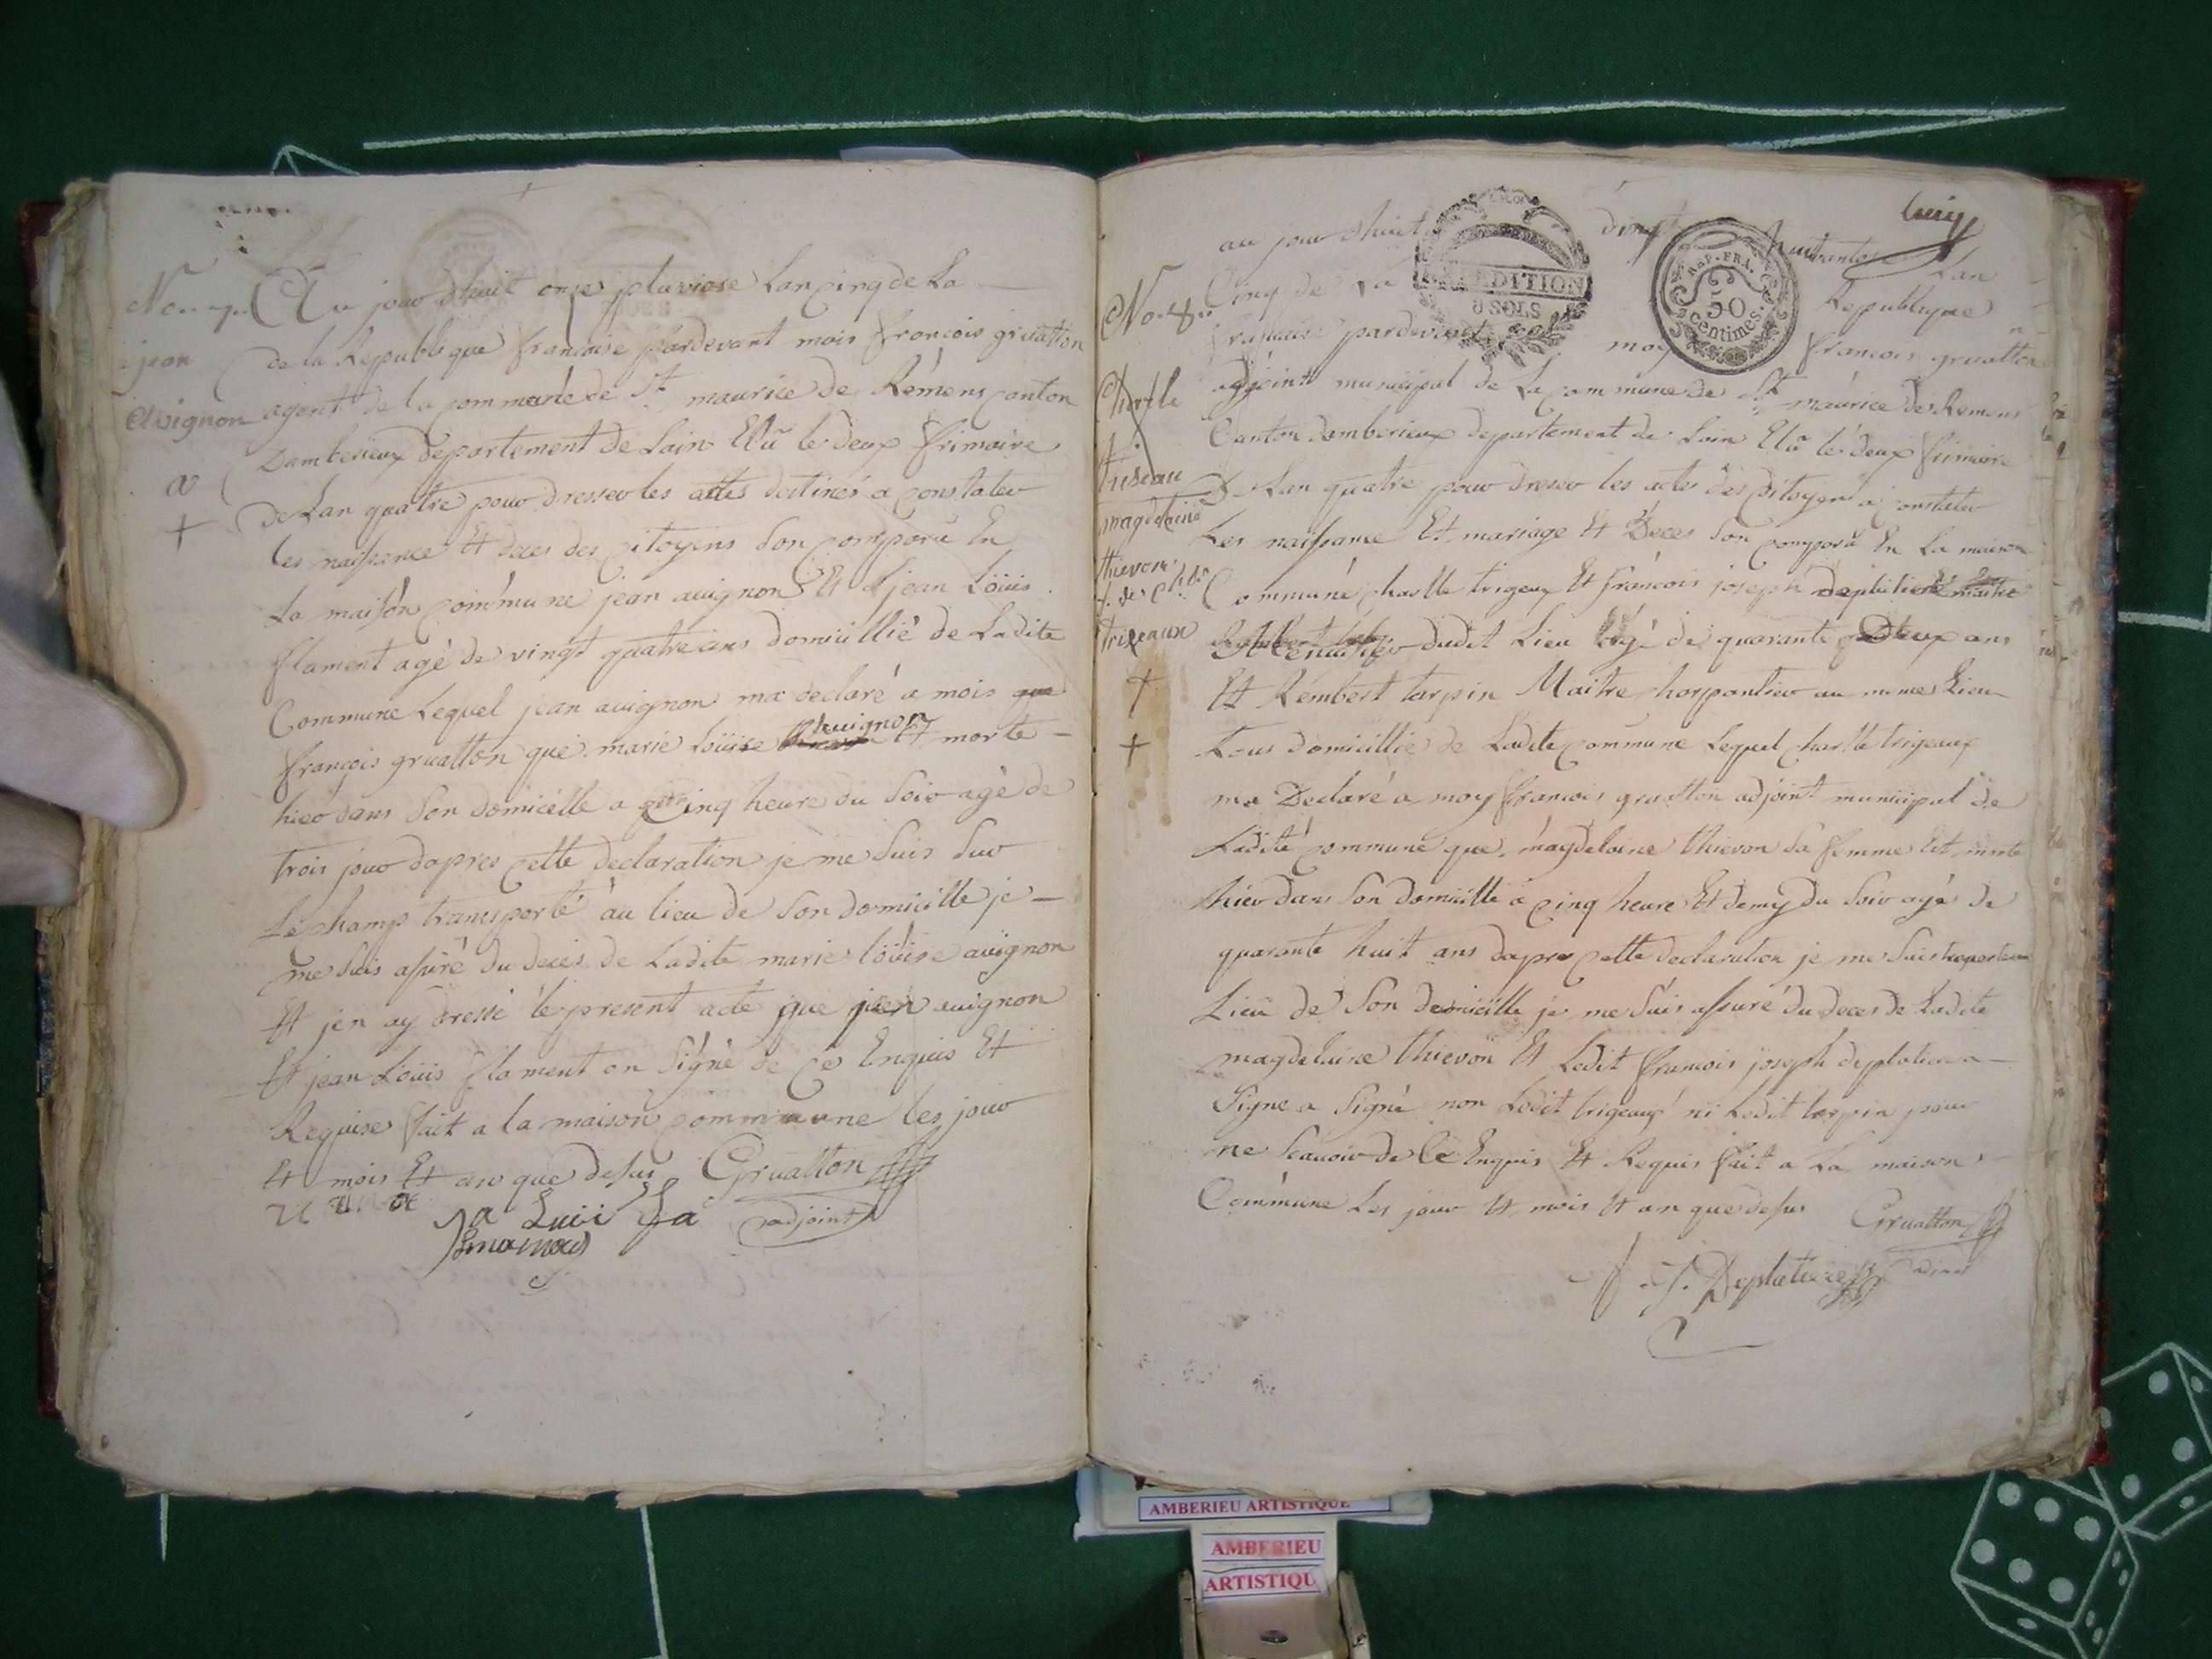 No. 7
jean
avignon
Au jour dhuit onze pluviose Lan cinq de La
de la Republique francoise pardevant mois francois gruatton
agent de la commune de St maurice de Rémens canton
Damberieux departement de Lain Elû le deux frimaire
de Lan quatre pour dresser les actes destinés a constater
les naissance Et deces des citoyens Son comparû En
La maison commune jean avignon Et jean Loüis
flament agé de vingt quatre ans domicillié de Ladite
Commune Lequel jean avignon ma declaré a mois
francois gruatton que marie Loüise avignon Et morte
hier dans Son domicille a cinq heure du Soir agé de
trois jour dapres cette declaration je me Suis Sur
Le champ transporté au lieu de Son domicille je
me Suis assuré du deces de Ladite marie loüise avignon
Et jen ay dressé le present acte que jean avignon
Et jean Loüis flament on Signé de ce Enquis Et
Requise fait a la maison commune les jour
Et mois Et an que desus Gruatton
adjoint
cinq
au jour dhuit Lan
Cinq de La Republique
EXPEDITION
8 SOLS
REP. FRA.
50
centimes
No. 8
Charle
magdelaine
thievon
f. de Ch.
trigeaux
francaise pardevant moy francois gruatton
adjoint municipal de La commune de St maurice de Remens
Canton damberieux departement de Lain Elû le deux frimaire
De Lan quatre pour dreser les actes des citoyens a constater
Les naissance Et mariage Et Deces Son comparu En La maison
Commune charlle trigeaux Et francois joseph deplatiere
dudit Lieu agé de quarante Deux ans
Et Rembert tarpin Maitre charpantier au meme Lieu
tous domicillié de Ladite commune Lequel charlle trigeaux
ma Declaré a moy francois gruatton adjoint municipal de
Ladite commune que magdelaine thievon Sa femme Et morte
hier dans Son domicille a cinq heure Et demy du Soir agé de
quarante huit ans dapres cette declaration je me Suis
Lieu de Son domicille je me Suis assuré du deces de Ladite
magdelaine thievon Et Ledit francois joseph deplatiere a
Signe a Signé non Ledit trigeaux ni Ledit tarpin pour
ne Scavoir de Ce Enquis Et Requis fait a La maison
Commune Les jour Et mois Et an que desus Gruatton
f. j. Deplatiere
AMBERIEU ARTISTIQUE
AMBERIEU
ARTISTIQU